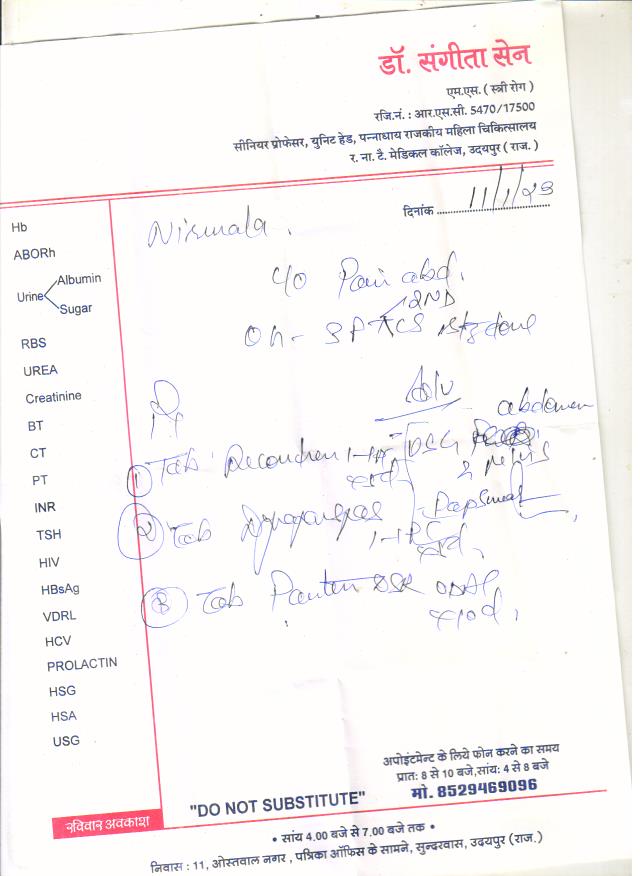 डॉ. संगीता सेन
एम.एस. ( स्त्री रोग )
रजि.नं. : आर.एस.सी. 5470/17500
सीनियर प्रोफेसर, युनिट हेड, पन्नाधाय राजकीय महिला चिकित्सालय
र. ना. टै. मेडिकल कॉलेज, उदयपुर ( राज. )
दिनांक 11/1/23
Nirmala.
Hb
ABORh
Urine Albumin
Sugar
RBS
UREA
Creatinine
BT
CT
PT
INR
TSH
HIV
HBsAg
VDRL
HCV
PROLACTIN
HSG
HSA
USG
c/o Pain abd.
2ND
Adv
abdomen
① Tab.
& pelvis
② Tab
Pap Smear
③ Tab
रविवार अवकाश
अपोइंटमेन्ट के लिये फोन करने का समय
प्रात: 8 से 10 बजे,सांय: 4 से 8 बजे
मो. 8529469096
"DO NOT SUBSTITUTE"
• सांय 4.00 बजे से 7.00 बजे तक •
निवास : 11, ओस्तवाल नगर , पत्रिका ऑफिस के सामने, सुन्दरवास, उदयपुर ( राज.)